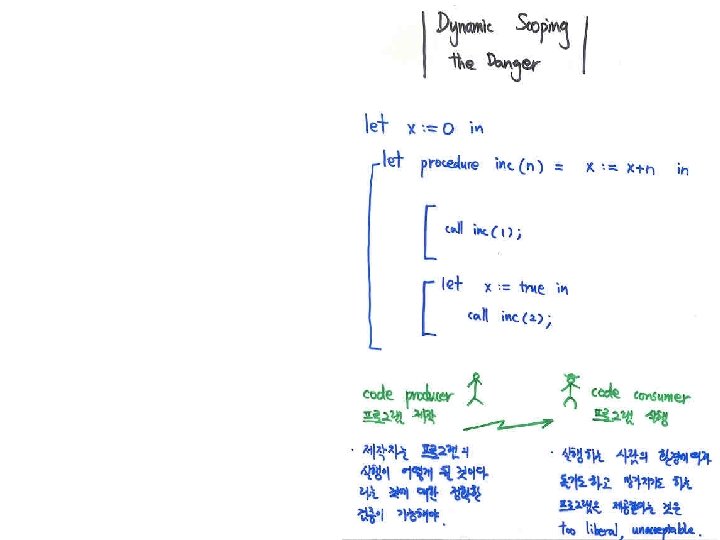 Dynamic Scoping
the Danger
let x := 0 in
let procedure inc(n) = x := x+n in
call inc(1);
let x := true in
call inc(2);
code producer
프로그램 제작
code consumer
프로그램 실행
· 제작자는 프로그램의
실행이 어떻게 될 것이다
라는 것에 대한 정확한
검증이 가능해야.
· 실행하는 사람의 환경에 따라
돌기도 하고 망가지기도 하는
프로그램은 제공한다는 것은
too liberal, unacceptable.